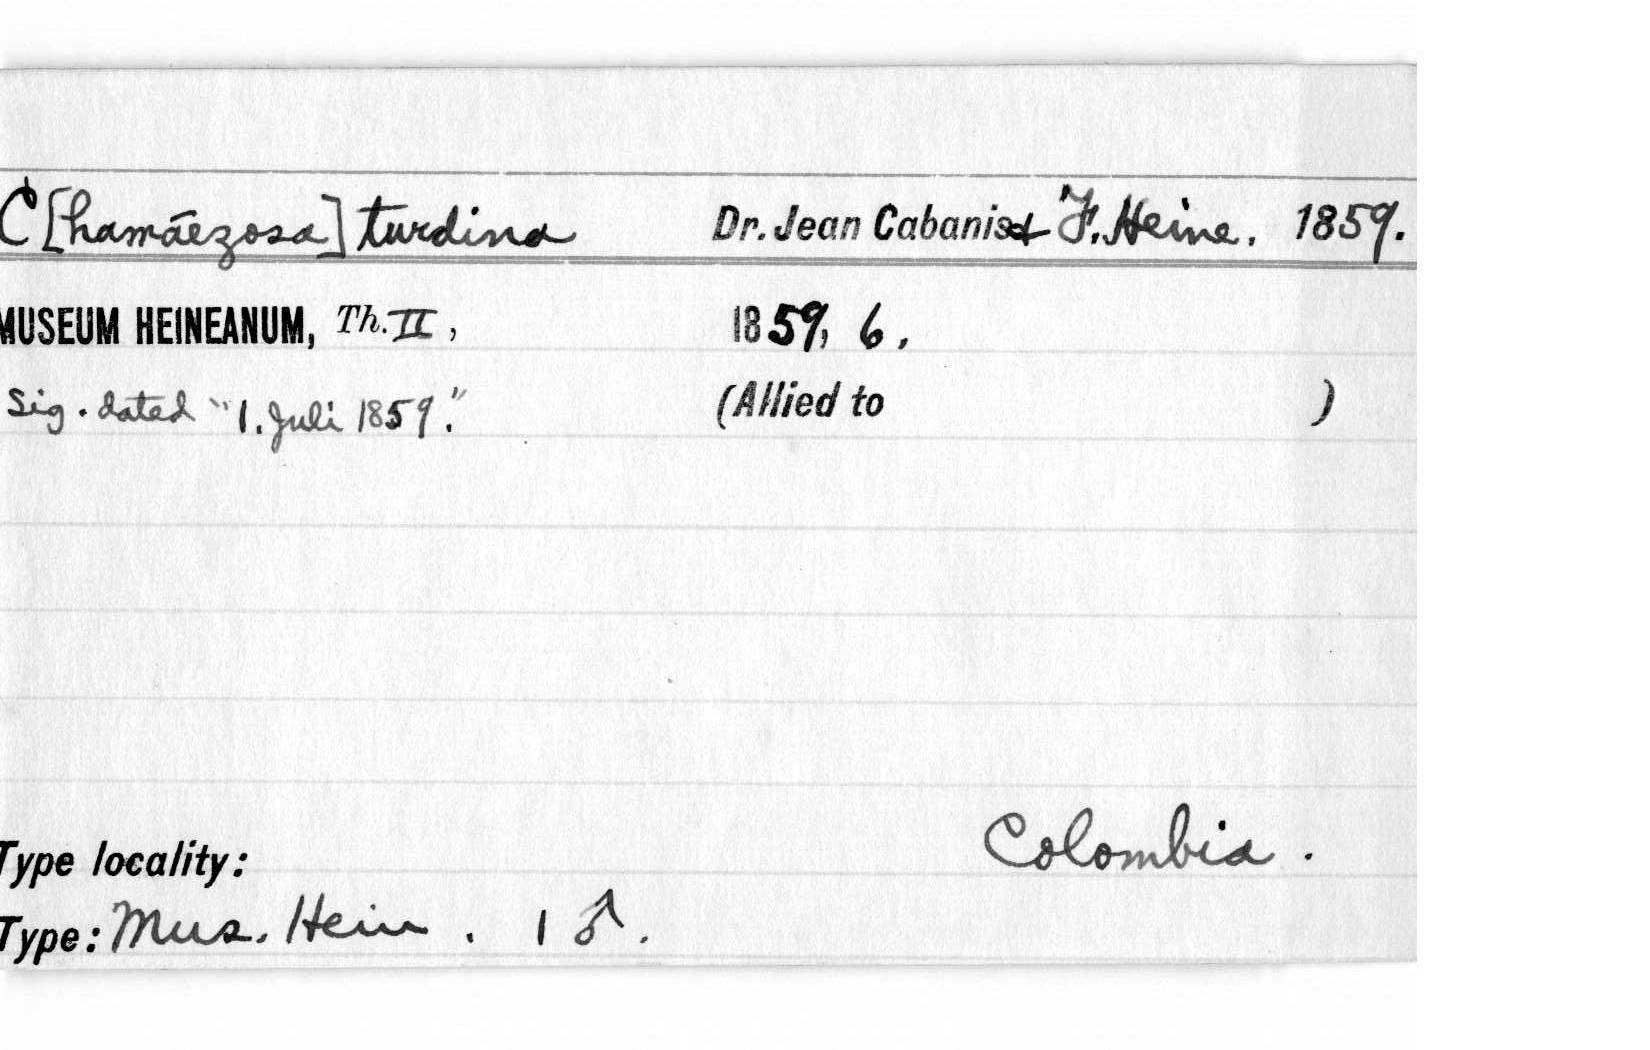 C[hamàezosa] turdina Dr. Jean Cabanis & F. Heine. 1859.
MUSEUM HEINEANUM, Th. II, 1859, 6.
Sig. dated "1. Juli 1859." (Allied to )
Type locality: Colombia.
Type: Mus. Hein. 1 ♂.